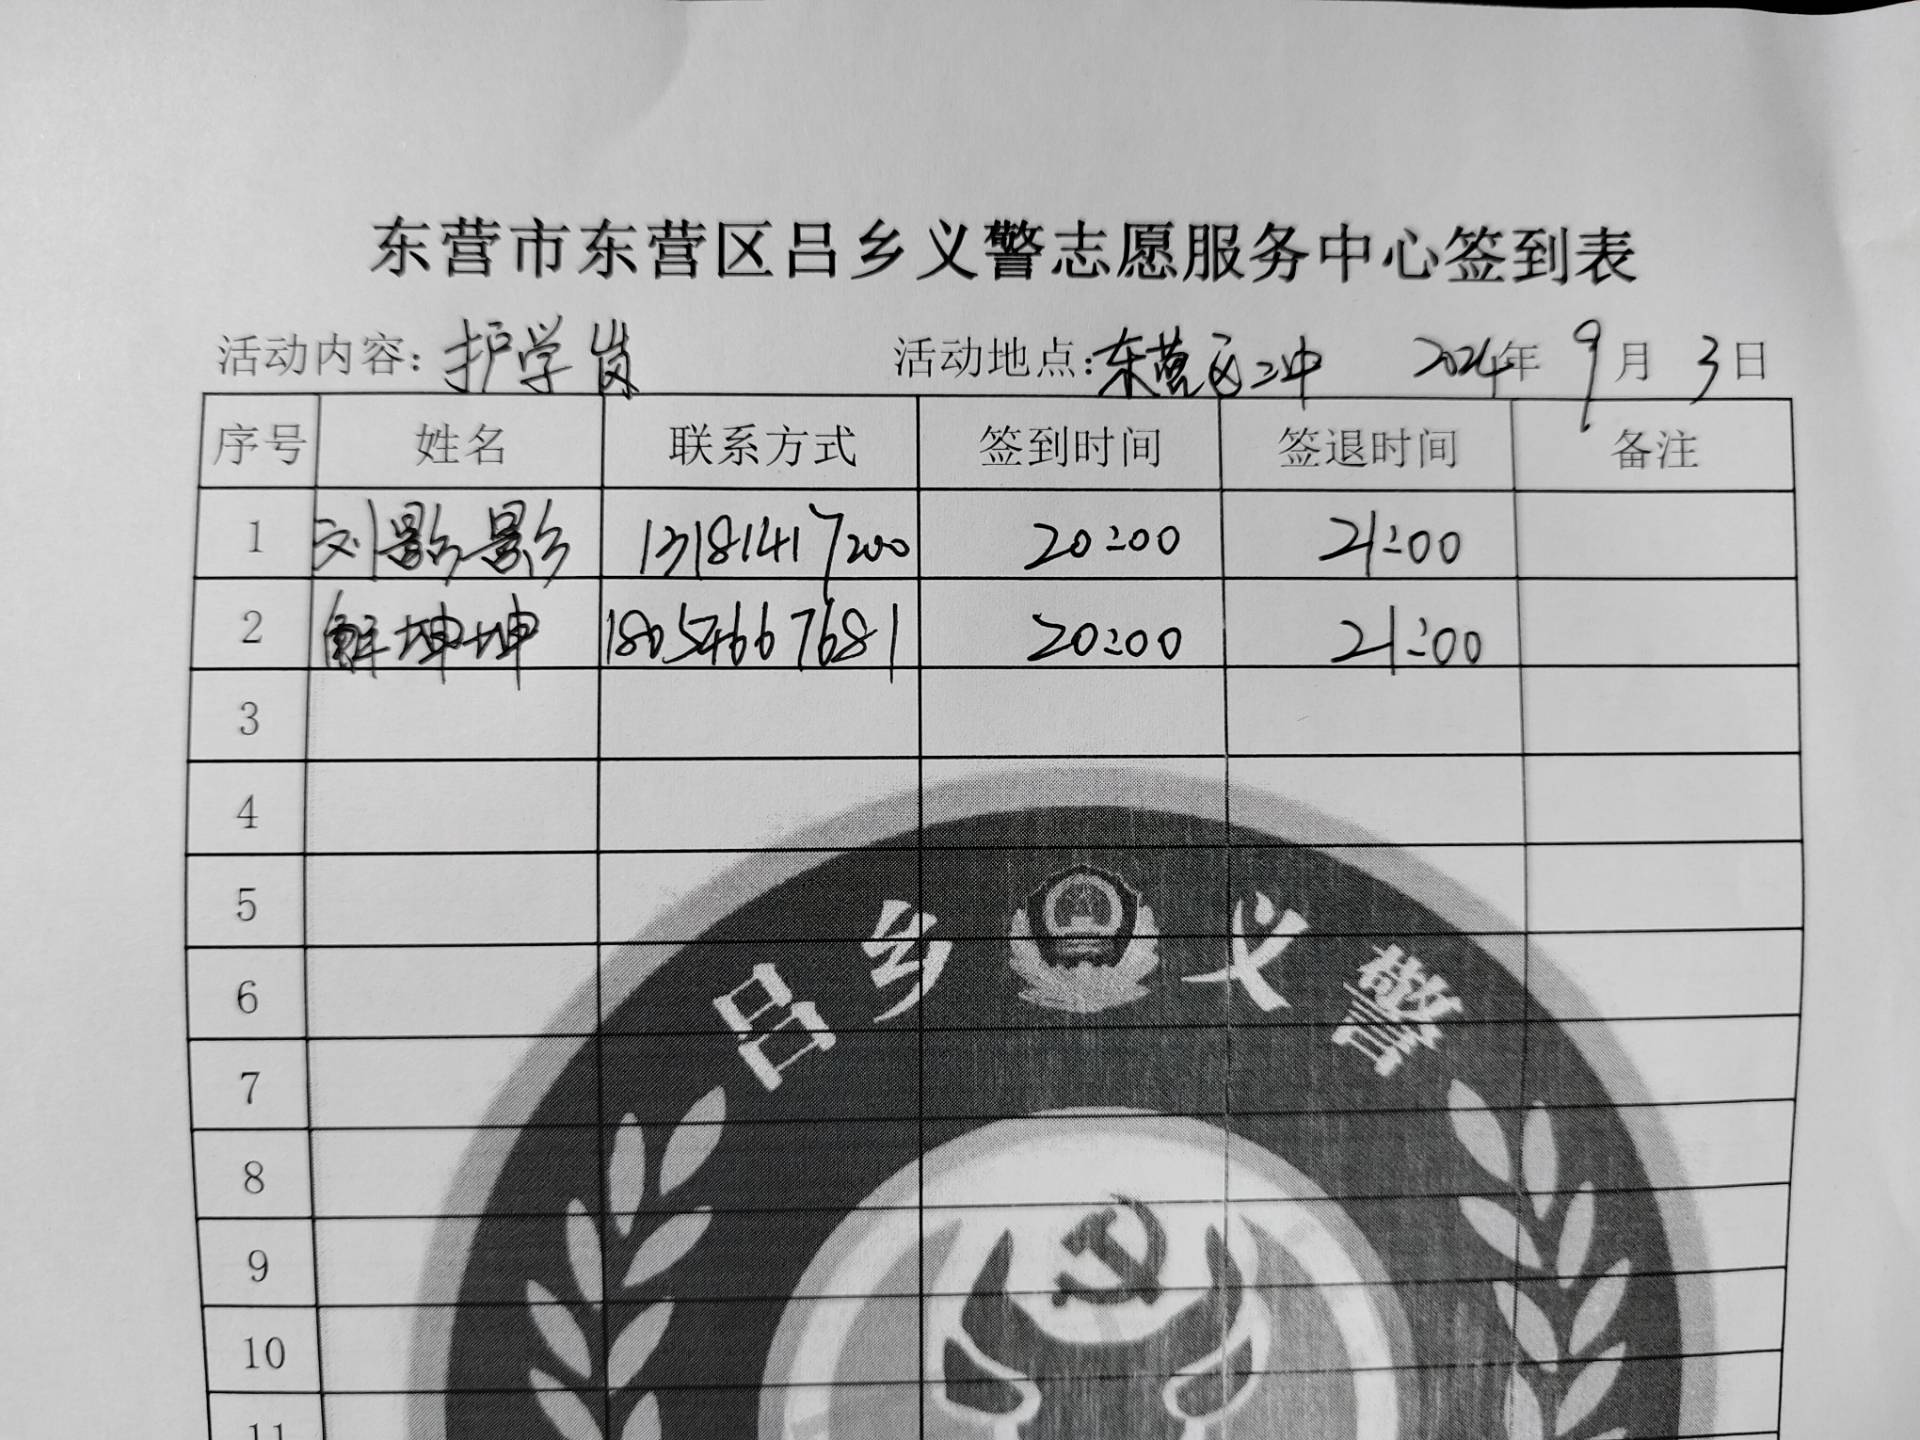 东营市东营区吕乡义警志愿服务中心签到表
活动内容：护学岗 活动地点：东营区二中 2024年 9月 3日
序号 姓名 联系方式 签到时间 签退时间 备注
1 刘影影 13181417200 20:00 21:00
2 解坤坤 18054667681 20:00 21:00
3
4
5
6
7
8
9
10
11
吕乡义警